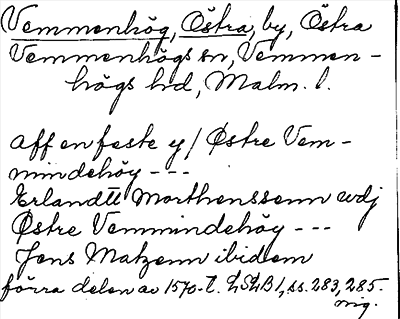 Vemmenhög, Östra, by, Östra
Vemmenhögs sn, Vemmen-
högs hd, Malm. l.
aff en feste y/ Østre Vem-
mindehöy ---
Erlandtt Morthenssenn wdj
Østre Vemmindehöy ---
Jens Matzenn ibidem
förra delen av 1570-t. LSLB 1, ss. 283, 285.
mg.